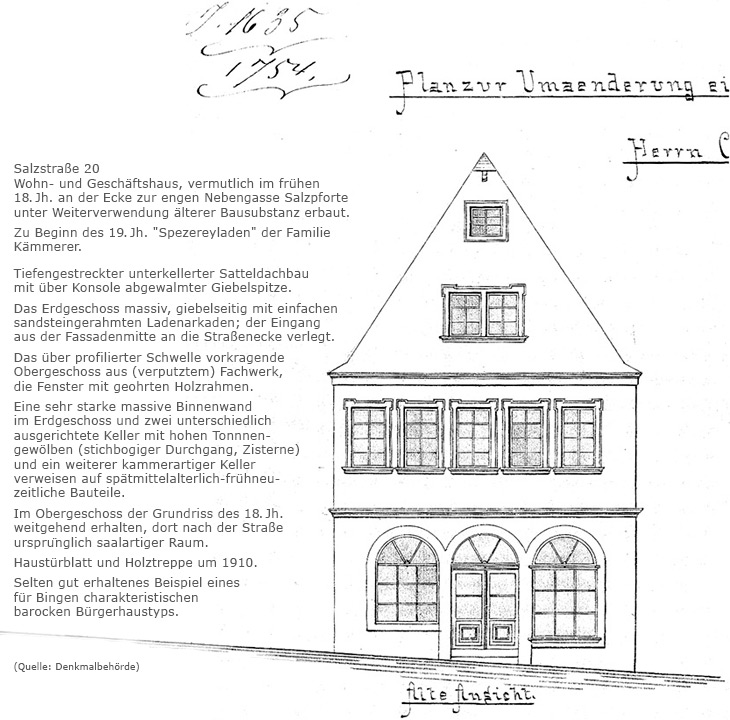 J. 1635
1754.
Plan zur Umaenderung ei
Herrn C
Salzstraße 20
Wohn- und Geschäftshaus, vermutlich im frühen
18. Jh. an der Ecke zur engen Nebengasse Salzpforte
unter Weiterverwendung älterer Bausubstanz erbaut.
Zu Beginn des 19. Jh. "Spezereyladen" der Familie
Kämmerer.
Tiefengestreckter unterkellerter Satteldachbau
mit über Konsole abgewalmter Giebelspitze.
Das Erdgeschoss massiv, giebelseitig mit einfachen
sandsteingerahmten Ladenarkaden; der Eingang
aus der Fassadenmitte an die Straßenecke verlegt.
Das über profilierter Schwelle vorkragende
Obergeschoss aus (verputztem) Fachwerk,
die Fenster mit geohrten Holzrahmen.
Eine sehr starke massive Binnenwand
im Erdgeschoss und zwei unterschiedlich
ausgerichtete Keller mit hohen Tonnnen-
gewölben (stichbogiger Durchgang, Zisterne)
und ein weiterer kammerartiger Keller
verweisen auf spätmittelalterlich-frühneu-
zeitliche Bauteile.
Im Obergeschoss der Grundriss des 18. Jh.
weitgehend erhalten, dort nach der Straße
ursprünglich saalartiger Raum.
Haustürblatt und Holztreppe um 1910.
Selten gut erhaltenes Beispiel eines
für Bingen charakteristischen
barocken Bürgerhaustyps.
(Quelle: Denkmalbehörde)
Alte Ansicht.